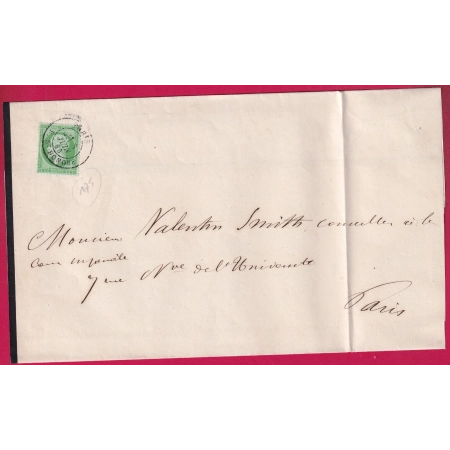 PARIS
175
Monsieur Valentin Smith conseiller à la
Cour impériale
7 rue Nve de l'Université
Paris